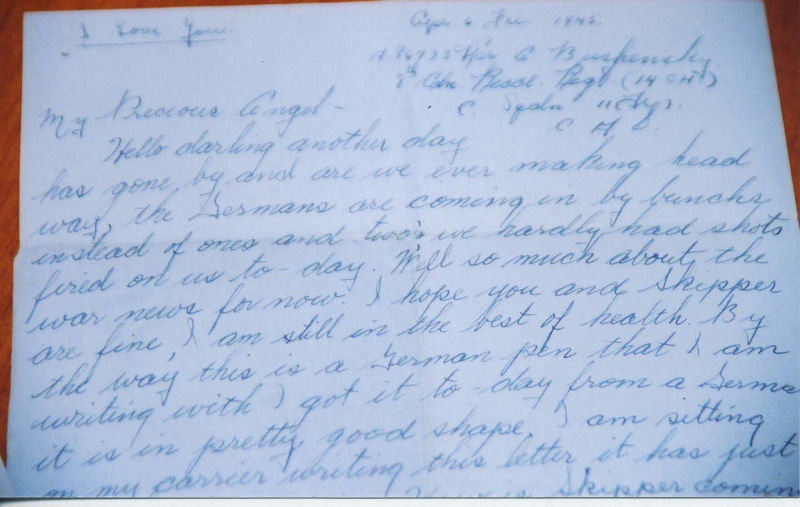 I Love You
Apr. 6 Fri 1945.
Cdn. Recce. Regt (14 CH)
C. Sqdn 11 Trp.
My Precious Angel-
Hello darling another day
has gone by and are we ever making head
way, the Germans are coming in by bunchs
instead of ones and two's we hardly had shots
fired on us to-day. Well so much about the
war news for now. I hope you and Skipper
are fine, I am still in the best of health. By
the way this is a German pen that I am
writing with I got it to-day from a Germa
it is in pretty good shape. I am sitting
on my carrier writing this letter it has just
Skipper comin